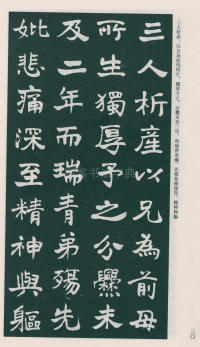 三人析產，以兄為前母所生，獨厚予之。分爨未及二年，而瑞青弟殤，先妣悲痛深至，精神與軀
三人析產以兄為前母
所生獨厚予之分爨未
及二年而瑞青弟殤先
妣悲痛深至精神與軀
三〇